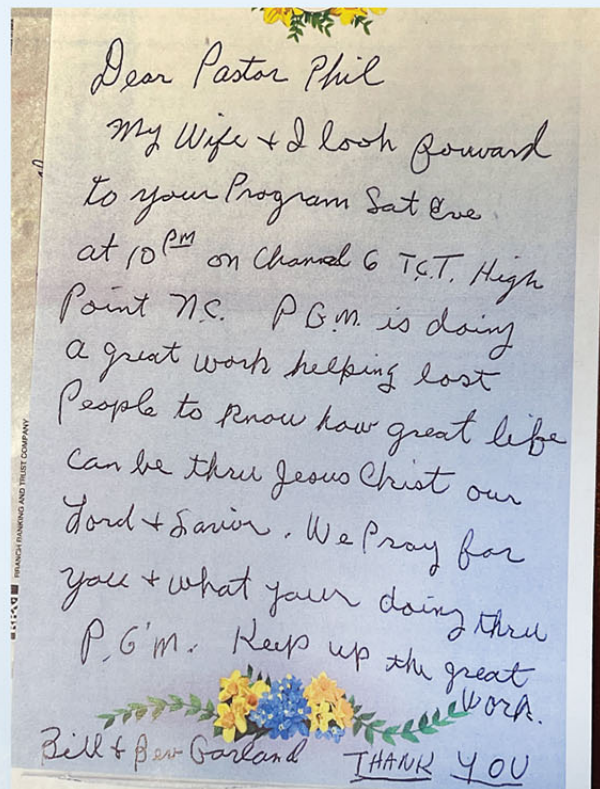 Dear Pastor Phil
My Wife + I look forward
to your Program Sat Eve
at 10 PM on Channel 6 T.C.T. High
Point N.C. P G.M. is doing
a great work helping lost
People to know how great life
can be thru Jesus Christ our
Lord + Savior. We Pray for
you + what your doing thru
P.G'M. Keep up the great
work.
Bill & Bev Garland THANK YOU
BRANCH BANKING AND TRUST COMPANY